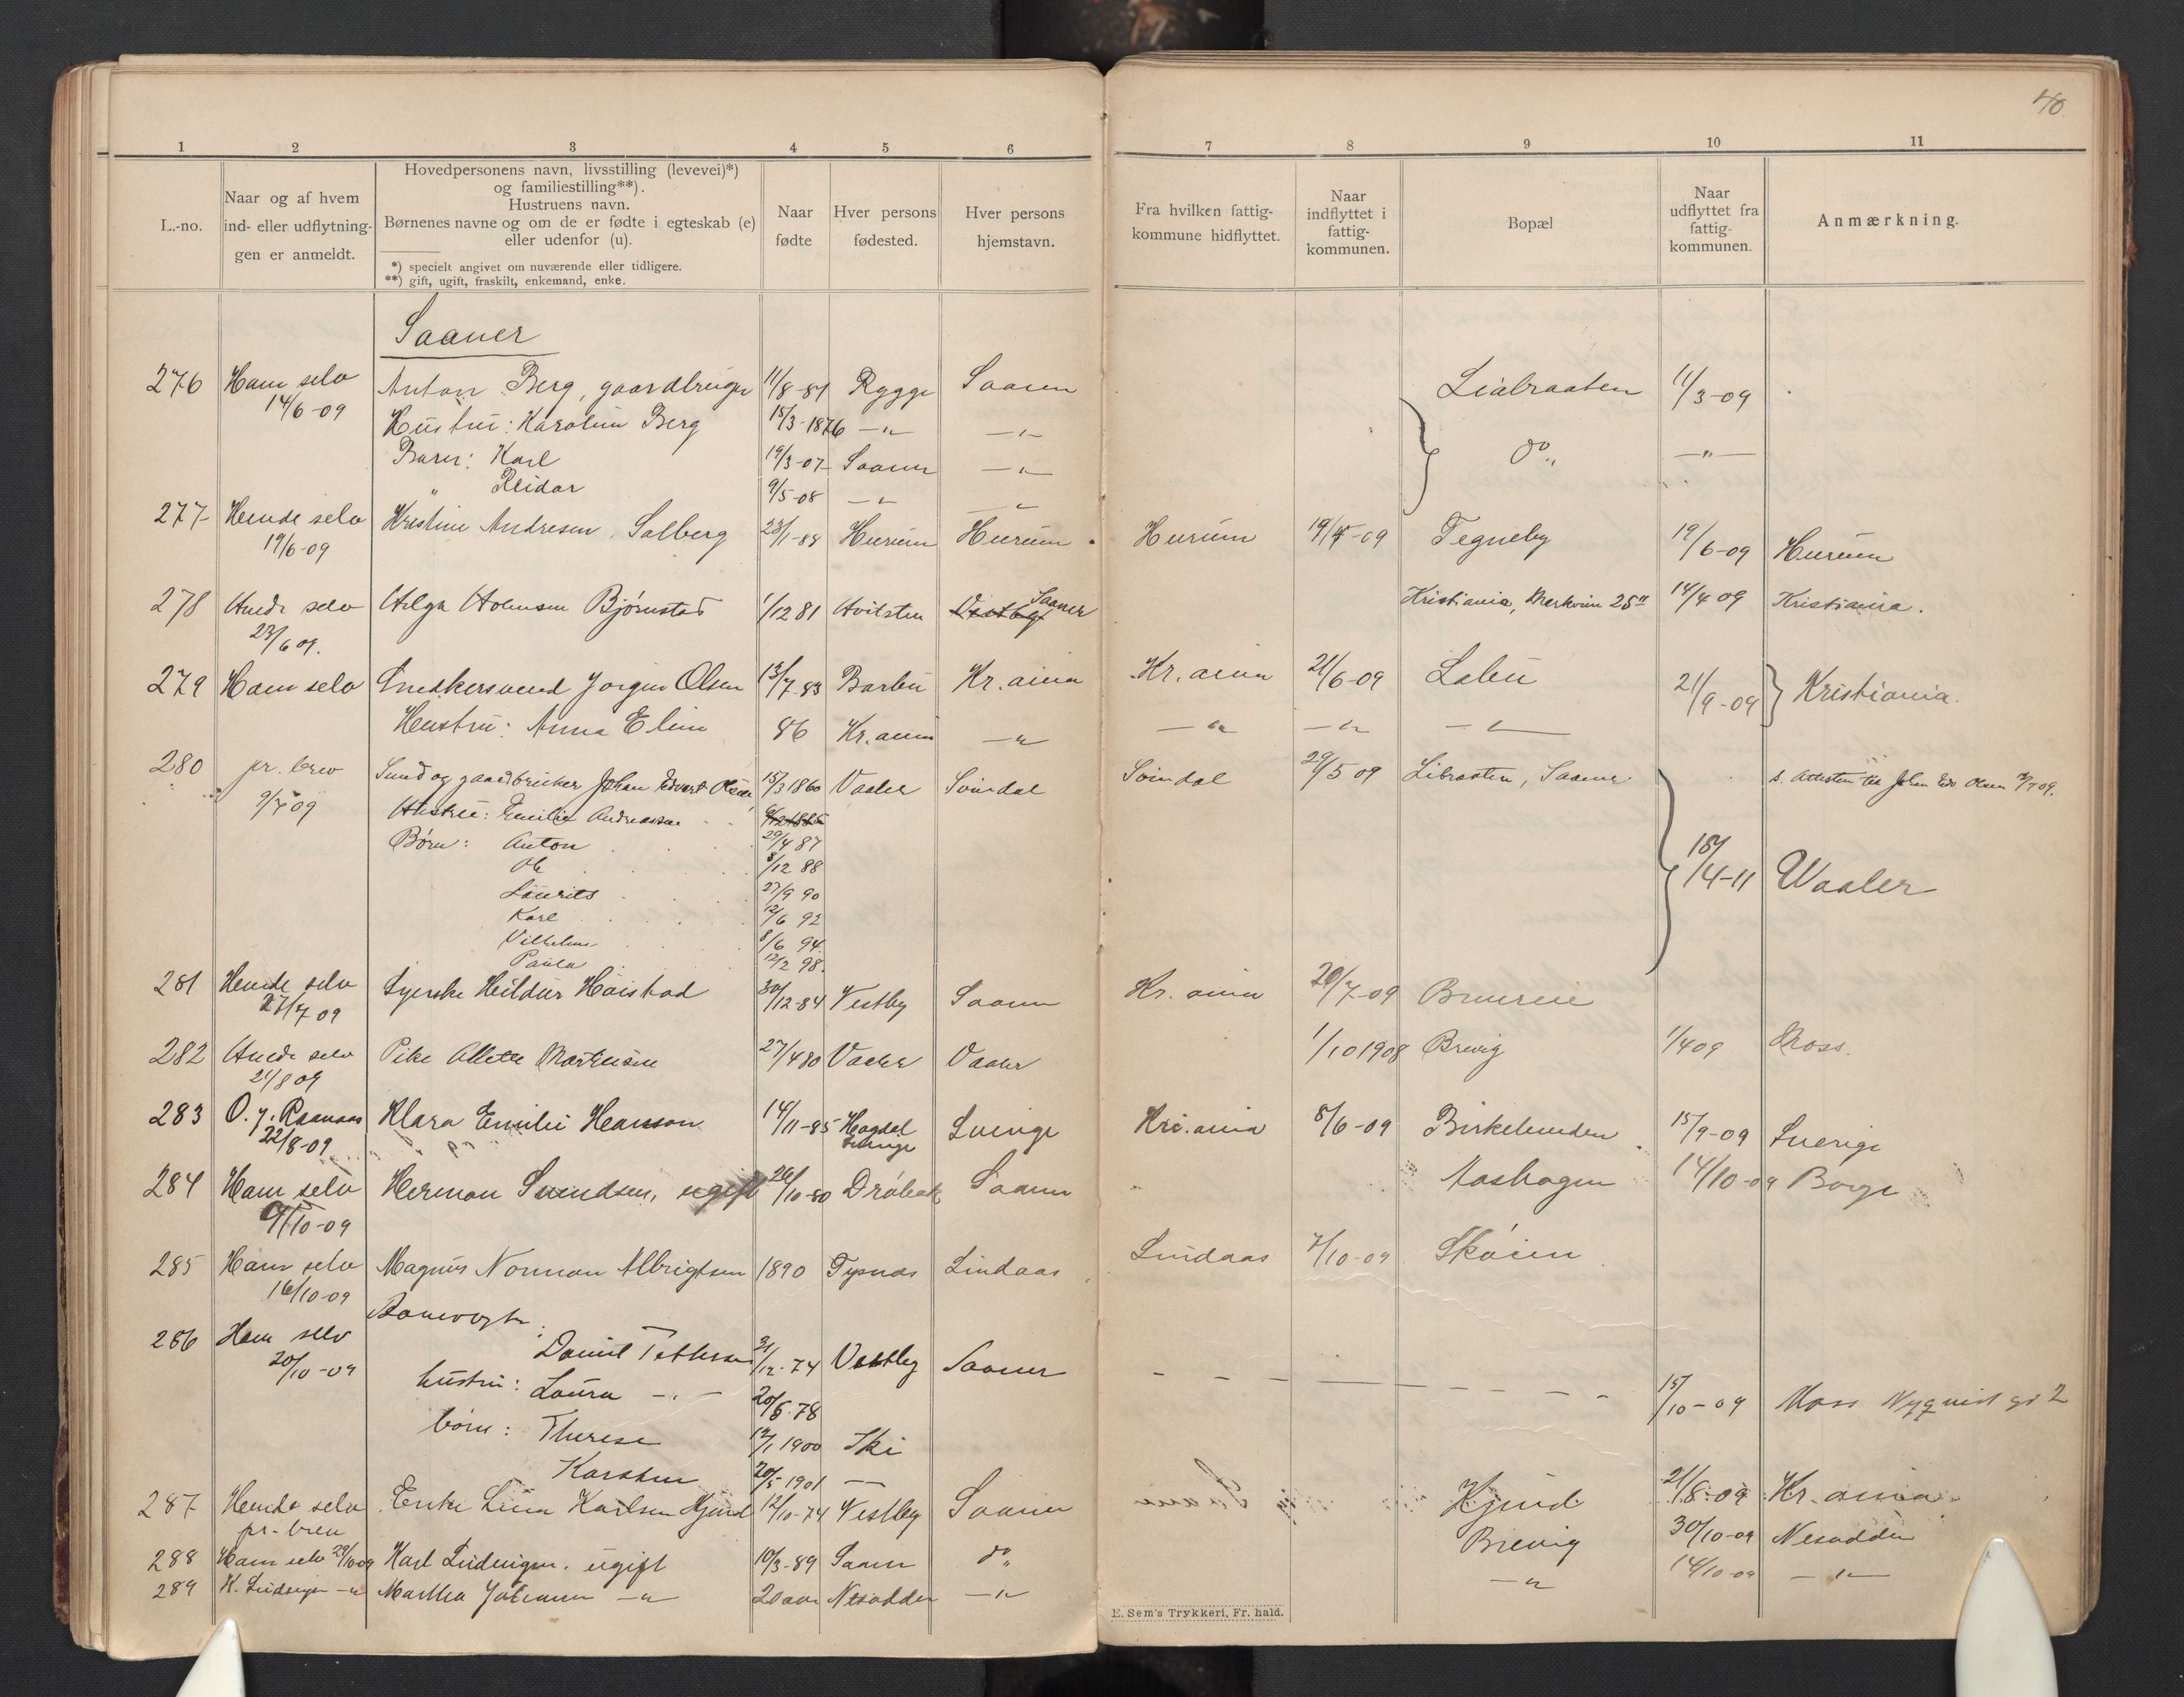 40
1 2 3 4 5 6 7 8 9 10 11
L.-no.
Naar og af hvem
ind- eller udflytnin-
gen er anmeldt.
Hovedpersonens navn, livsstilling (levevei)*)
og familiestilling**).
Hustruens navn.
Børnenes navne og om de er fødte i egteskab (e)
eller udenfor (u).
*) specielt angivet om nuværende eller tidligere.
**) gift, ugift, fraskilt, enkemand, enke.
Naar
fødte
Hver persons
fødested.
Hver persons
hjemstavn.
Fra hvilken fattig-
kommune hidflyttet.
Naar
indflyttet i
fattig-
kommunen.
Bopæl
Naar
udflyttet fra
fattig-
kommunen.
Anmærkning.
Saaner
276 Ham selv Anton Berg, gaardbruger 11/8-81 Rygge Saaner Liabraaten 11/3-09
14/6-09 Hustru: Karoline Berg 15/3-1876 —"— —"—
Barn: Karl 19/3-07 Saaner —"— do —"—
" Reidar 9/5-08 —"— —"—
277 Hende selv Kristine Andresen, Solberg 23/1-88 Hurum Hurum Hurum 19/4-09 Tegneby 19/6-09 Hurum
19/6-09
278 Hende selv Helga Holmsen Bjørnstad 1/12 81 Hvitsten Vestby Saaner Kristiania, Markvein 25" 14/4 09 Kristiania.
23/6 09.
279 Ham selv Snedkersvend Jørgen Olsen 13/7-83 Barbu Kr.ania Kr.ania 21/6-09 Labu 21/9-09 Kristiania.
Hustru: Anna Eline 86 Kr.ania —"— —"— —"— —"—
280 pr. brev Smed og gaardbruker Johan Edvart Olsen, 15/3 1860 Vaaler Svindal Svindal 29/5 09 Libraaten, Saaner. s. Attesten til Johan Edv. Olsen 9/7 09.
9/7 09 Hustru: Emilie Andreassen
Børn: Anton 29/4 87
Ole 8/12 88 18/4-11 Waaler
Laurits 27/9 90
Karl 12/6 92
Vilhelm 8/6 94
Paula 12/2 98.
281 Hende selv Syerske Hildur Høistad 30/12-84 Vestby Saaner Kr.ania 20/7-09 Brureie
27/7 09
282 Hende selv Pike Allette Martinsen 27/4 80 Vaaler Vaaler 1/10 1908 Brevig 1/4 09 Moss.
21/8 09
283 O. J. Raanaas Klara Emilie Hansson 14/11-85 Hogdal Sverige Sverige Kri.ania 8/6-09 Birkelunden 15/9-09 Sverige
22/8-09
284 Ham selv Herman Svendsen, ugift 26/10-80 Drøbak Saaner Aashagen 14/10-09 Borge
9/10-09
285 Ham selv Magnus Norman Albrigtsen 1890 Tysnæs Lindaas Lindaas 7/10-09 Skøien
16/10-09
Banevogter
286 Ham selv Daniel Pettersen 31/12-74 Vestby Saaner
20/10-09 hustru: Laura —"— 20/6-78 15/10-09 Moss Nyquist gd 2
børn: Therese 12/1 1900 Ski
Karsten 20/5-1901 —
287 Hende selv Enke Lina Karlsen Kjind 12/10-74 Vestby Saaner Kjind 21/8-09 Kr.ania
pr. brev
288 Ham selv 29/10 09 Karl Ludvigsen, ugift 10/3-89 Saaner do Brevig 30/10-09 Nesodden
289 K. Ludvigsen —"— Martha Johansen —"— 20 aar Nesodden —"— —"— 14/10-09 —"—
E. Sem's Trykkeri, Fr. hald.